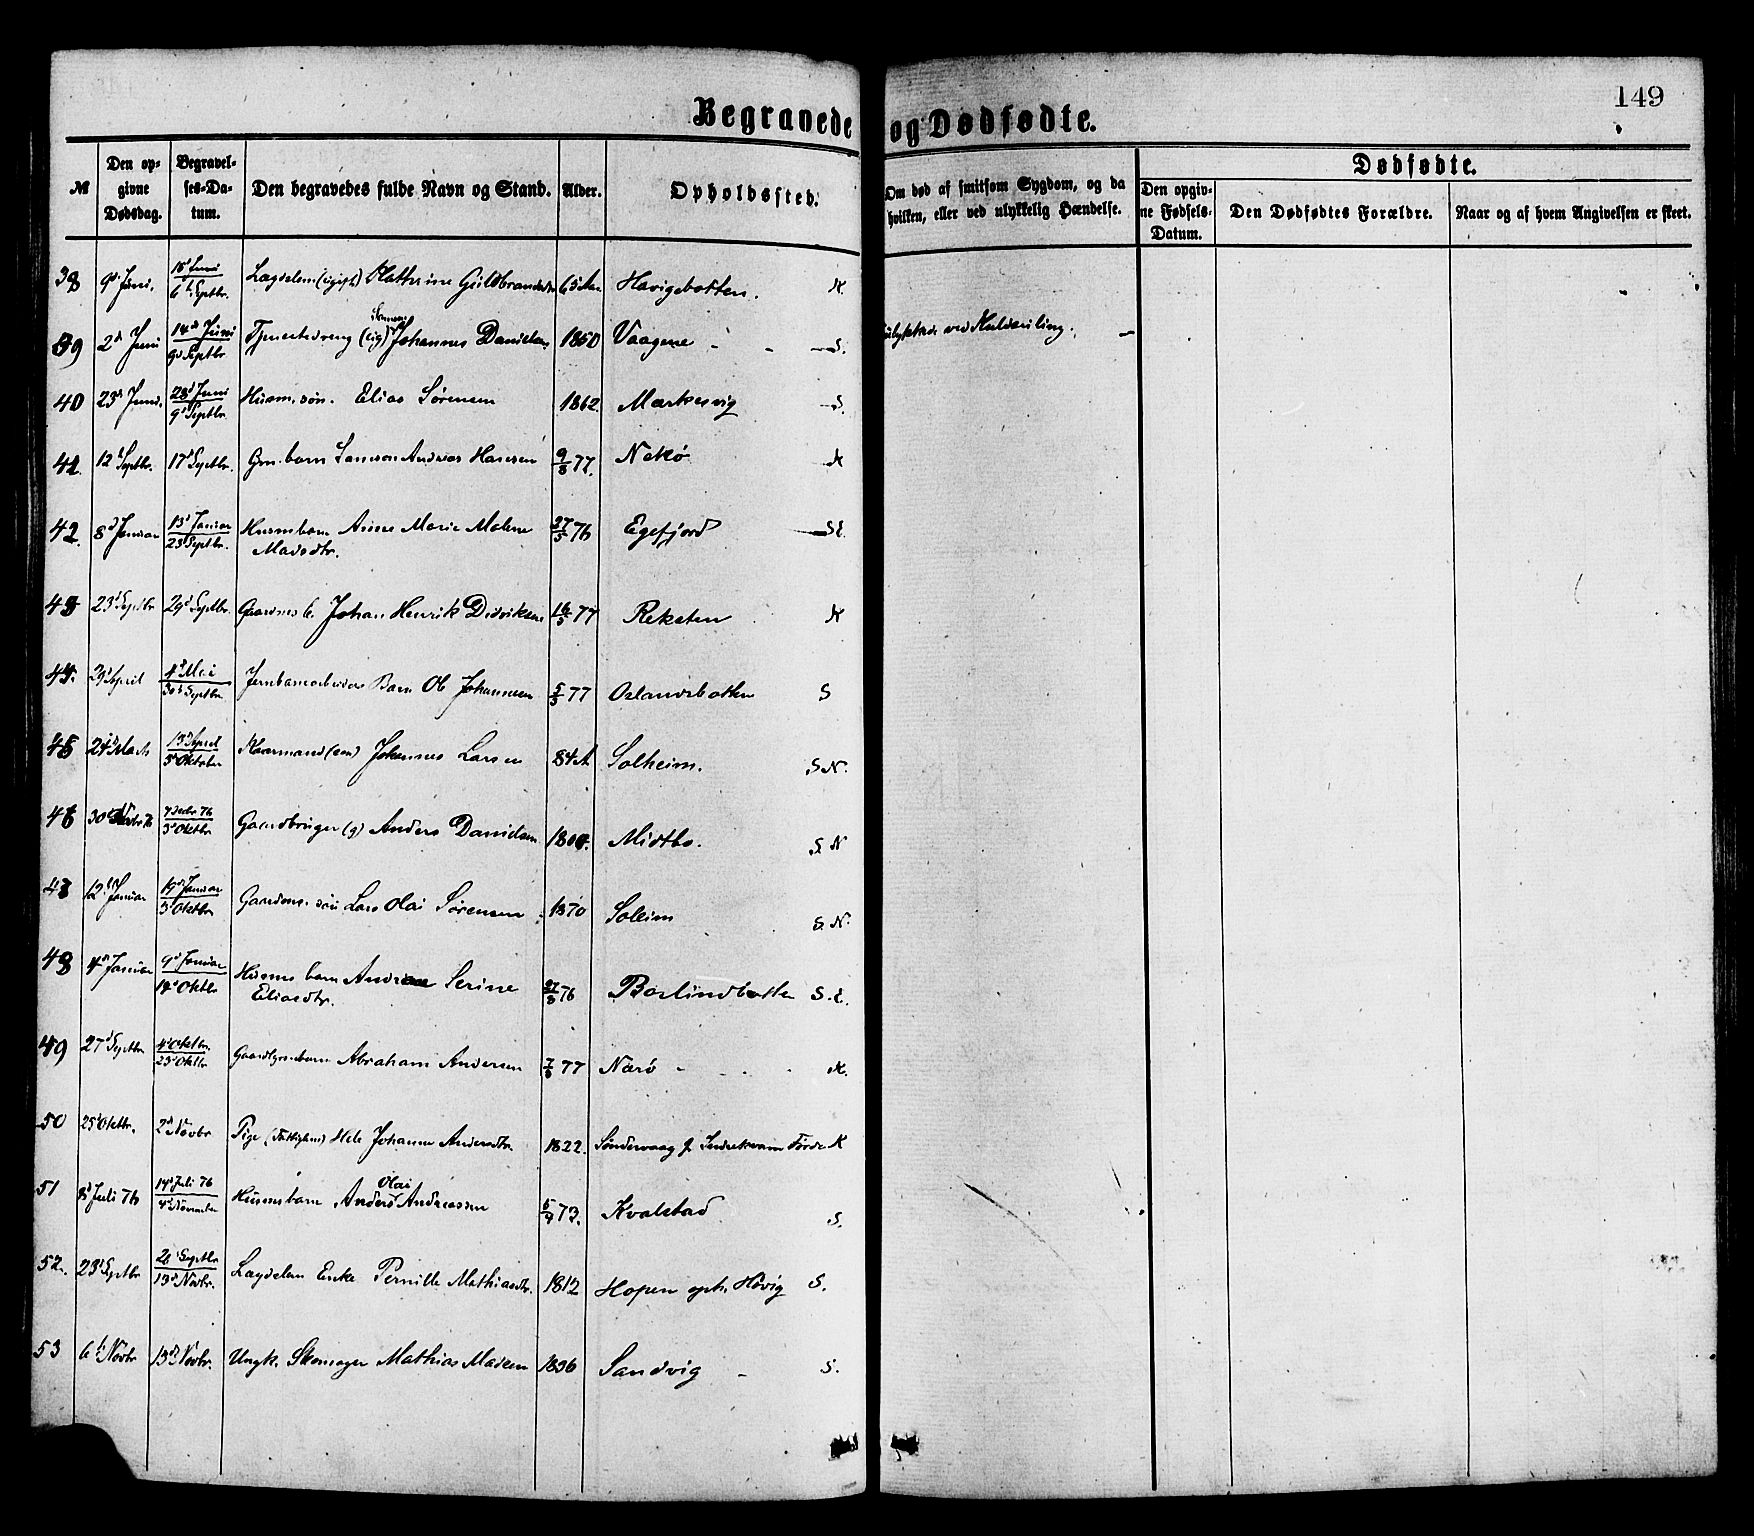 149
Begravede og Dødfødte.
№
Den opgivne Dødsdag.
Begravelses-Datum.
Den begravedes fulde Navn og Stand.
Alder.
Opholdssted.
Om død af smitsom Sygdom, og da hvilken, eller ved ulykkelig Hændelse.
Dødfødte.
Den opgivne Fødsels-Datum.
Den Dødfødtes Forældre.
Naar og af hvem Angivelsen er skeet.
38 9d Juni. 15d Juni 6t Septbr. Lægdslem (ugift) 65 Aar N.
39 2d Juni 14d Juni 9d Septbr Tjenestedreng (ug) Johannes Danielsen 1860 Vaagene S. ved
40 23d Juni. 28d Juni 9d Septbr. Husm. søn. Elias Sørensen 1862. Markesvig S.
41. 12t Septbr. 17d Septbr. Grm. barn Andreas Hansen 9/8 77. Nekø N
42. 8d Januar 13d Januar 23d Septbr. Husmbarn Anne Marie Malene
Madsdtr. 27/5 76 Egefjord
43 23d Septbr 29d Septbr. Gaardms b. Johan Henrik Didriksen 16/5 77 Reksten N
44. 29d April 4d Mai 30t Septbr Barn Ole Johannesen 5/3 77 Oslandsbotten S
45 24d Marts 13d April 3d Oktober Kaarmand (em) Johannes Larsen 84 A Solheim. S N.
46 30t Novbr 76 7 Decbr 76 3d Oktbr. Gaardbruger (g) Anders Danielsen Midtbø. S. N
47 12t Januar 19d Januar 3d Oktbr Gaardms. søn Lars Olai Sørensen 1870 Soleim S. N.
48 4d Januar 9d Januar 14d Oktbr Husms barn Serine
Eliasdtr. 27/8 76 S. E.
49 27d Septbr 4d Oktbr. 23d Oktbr Abraham Andersen 7/8 77 Nærø
50 25d Oktbr. 2d Novbr Pige (Fattiglem) Johanne Andersdtr. 1822. Søndervaag K
51 8d Juli 76 14d Juli 76 4d November Husmsbarn Anders Olai Andreassen 5/9 73. Kvalstad S.
52. 23d Septbr Septbr 13d Novbr. Lægdslem Enke Pernille Mathiasdtr. 1812 Hopen oph. Høvig S.
53 6t Novbr 13d Novbr. Ungk. Skomager Mathias Madsen 1836 Sandvig S.